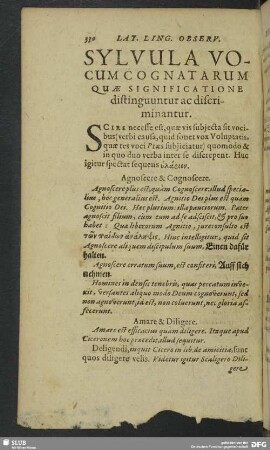 330 LAT. LING. OBSERV.
SYLVULA VO-
CUM COGNATARUM
QUÆ SIGNIFICATIONE
distinguuntur ac discri-
minantur.
SCIRE necesse est, quæ vis subjecta sit voci-
bus; verbi causâ, quid sonet vox Voluptatis,
quæ res voci Præs subjiciatur; quomodo &
in quo duo verba inter se discrepent. Huc
igitur spectat sequens
Agnoscere & Cognoscere.
Agnoscere plus est, quàm Cognoscere: illud specia-
lius, hoc generalius est. Agnitio Dei plus est quàm
Cognitio Dei. Hæc plurium: illa paucorum. Pater
agnoscit filium, cum eum ad se adsciscit, & pro suo
habet: Qua liberorum Agnitio,
Huc intelligitur, quid sit
Agnoscere aliquem discipulum suum, Einen dafür
halten.
Agnoscere erratum suum, est confiteri, Auff sich
nehmen.
Homines in densis tenebris, quas peccatum inve-
xit, versantes aliquo modo Deum cognoverunt, sed
non agnoverunt, id est, non coluerunt, nec gloria af-
fecerunt.
Amare & Diligere.
Amare est efficacius quàm diligere. Itaque apud
Ciceronem hoc præcedit, illud sequitur.
Deligendi, inquit Cicero in lib. de amicitia, sunt
quos diligere velis. Videtur igitur Scaligero Dili-
gere
SLUB